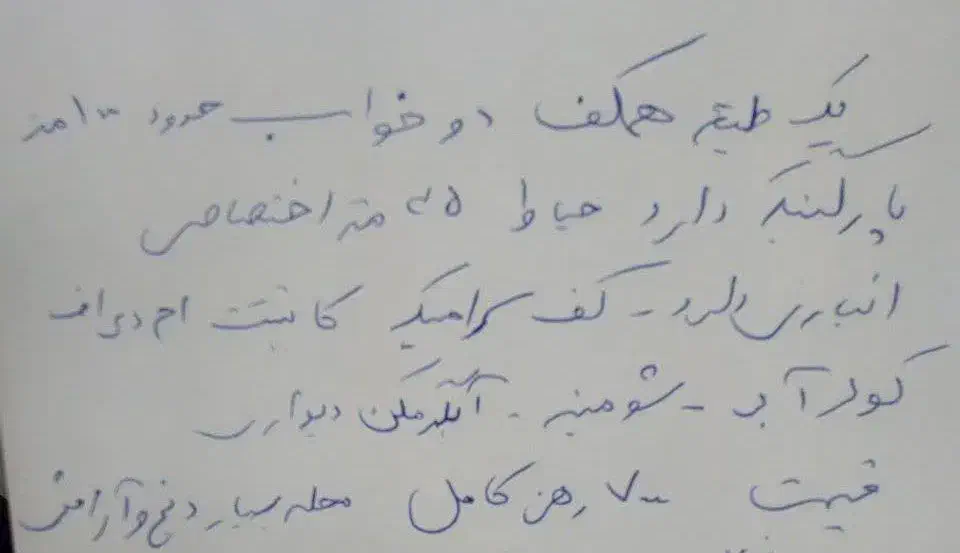 یک طبقه همکف دو خواب حدود ۱۰۰ متر
پارکینگ دارد حیاط ۲۵ متر اختصاصی
انباری دارد - کف سرامیک کابینت ام دی اف
کولر آبی - شومینه - آبگرمکن دیواری
قیمت ۷۰۰ رهن کامل محله بسیار دنج و آرامش